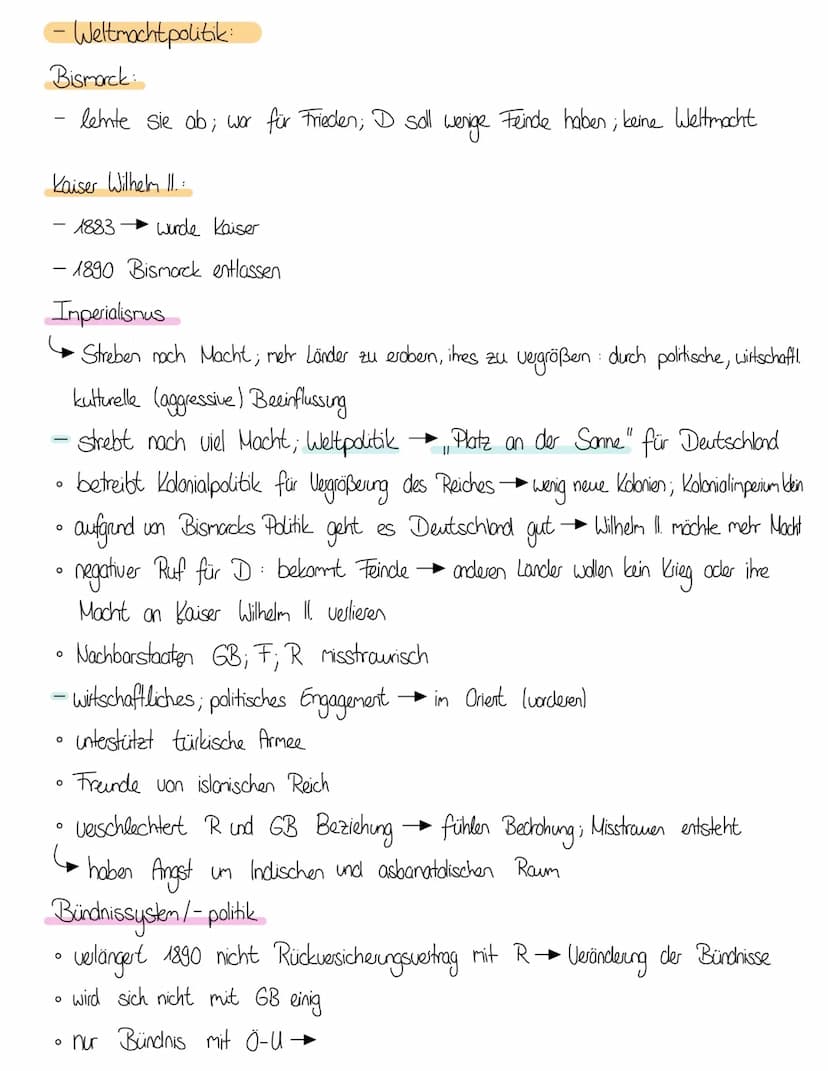 - Weltmachtpolitik:
Bismarck:
- lehnte sie ab; war für Frieden; D soll wenige Feinde haben; keine Weltmacht
Kaiser Wilhelm II.:
- 1883 → wurde Kaiser
- 1890 Bismarck entlassen
Imperialismus
↳ Streben nach Macht; mehr Länder zu erobern, ihres zu vergrößern : durch politische, wirtschaftl.
kulturelle (aggressive) Beeinflussung
- strebt nach viel Macht; Weltpolitik → „Platz an der Sonne" für Deutschland
• betreibt Kolonialpolitik für Vergrößerung des Reiches → wenig neue Kolonien; Kolonialimperium klein
• aufgrund von Bismarcks Politik geht es Deutschland gut → Wilhelm II. möchte mehr Macht
• negativer Ruf für D : bekommt Feinde → anderen Länder wollen kein Krieg oder ihre
Macht an Kaiser Wilhelm II. verlieren
• Nachbarstaaten GB; F; R misstraurisch
- wirtschaftliches; politisches Engagement → im Orient (vorderen)
• unterstützt türkische Armee
• Freunde von islamischen Reich
• verschlechtert R und GB Beziehung → fühlen Bedrohung; Misstrauen entsteht
↳ haben Angst um Indischen und Raum
Bündnissystem/-politik
• verlängert 1890 nicht Rückversicherungsvertrag mit R → Veränderung der Bündnisse
• wird sich nicht mit GB einig
• nur Bündnis mit Ö-U →